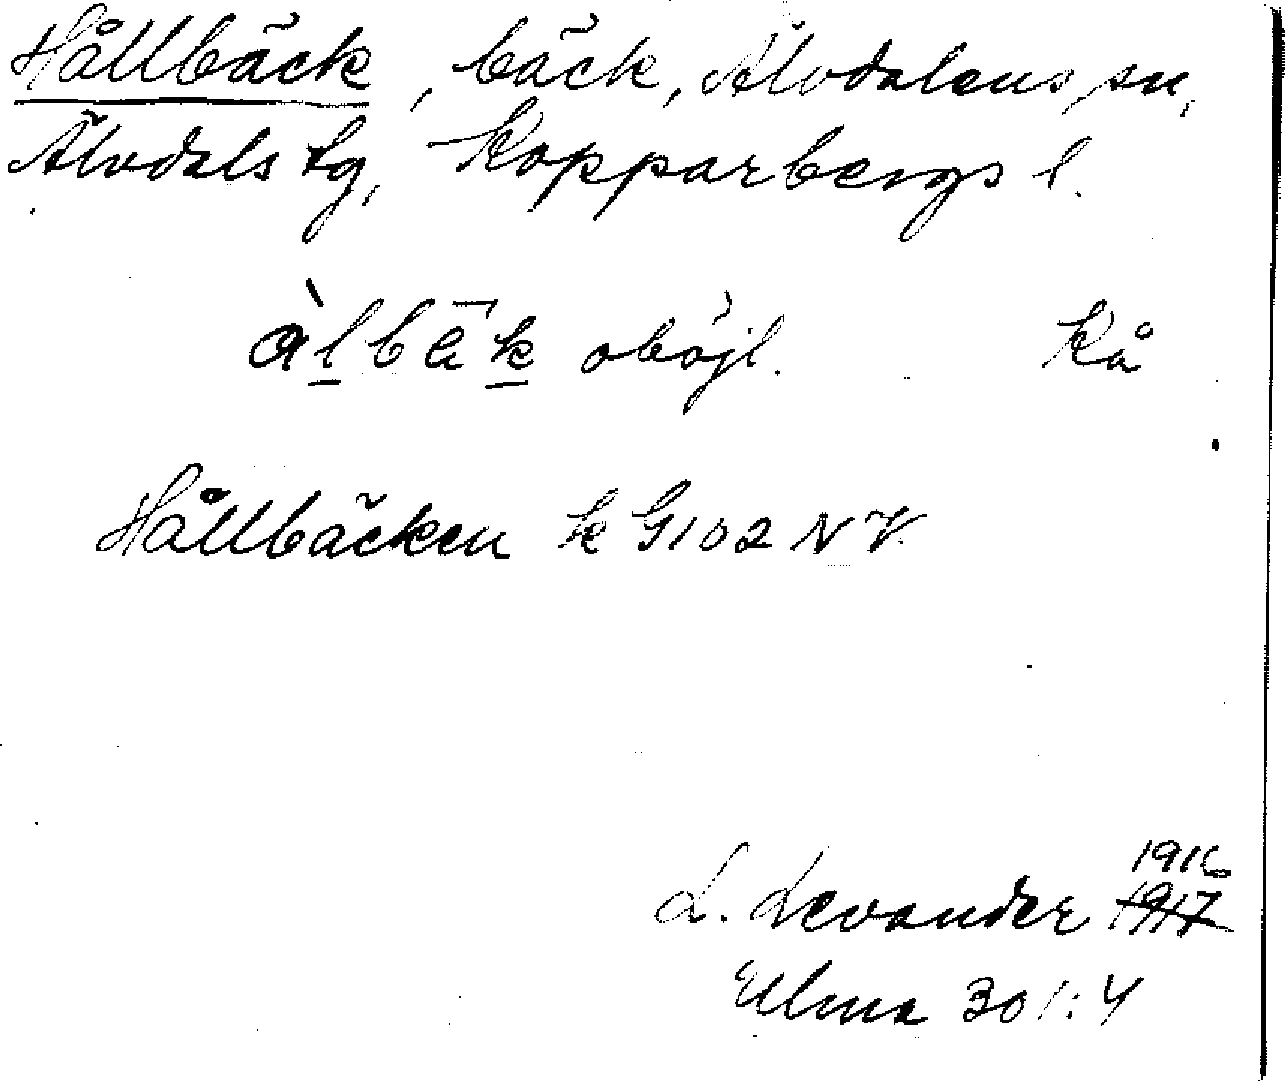 Hållbäck, bäck, Älvdalens sn,
Älvdals tg, Kopparbergs l.
àlbäk oböjl. Kå
Hållbäcken k G102 NV.
1916
L. Levander 1917
Ulma 301:4